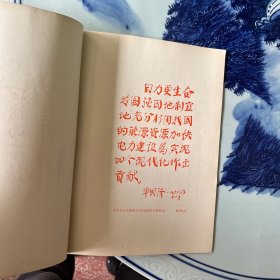 自力更生奋
发图强因地制宜
地充分利用我国
的能源资源加快
电力建设为实现
四个现代化作出
贡献